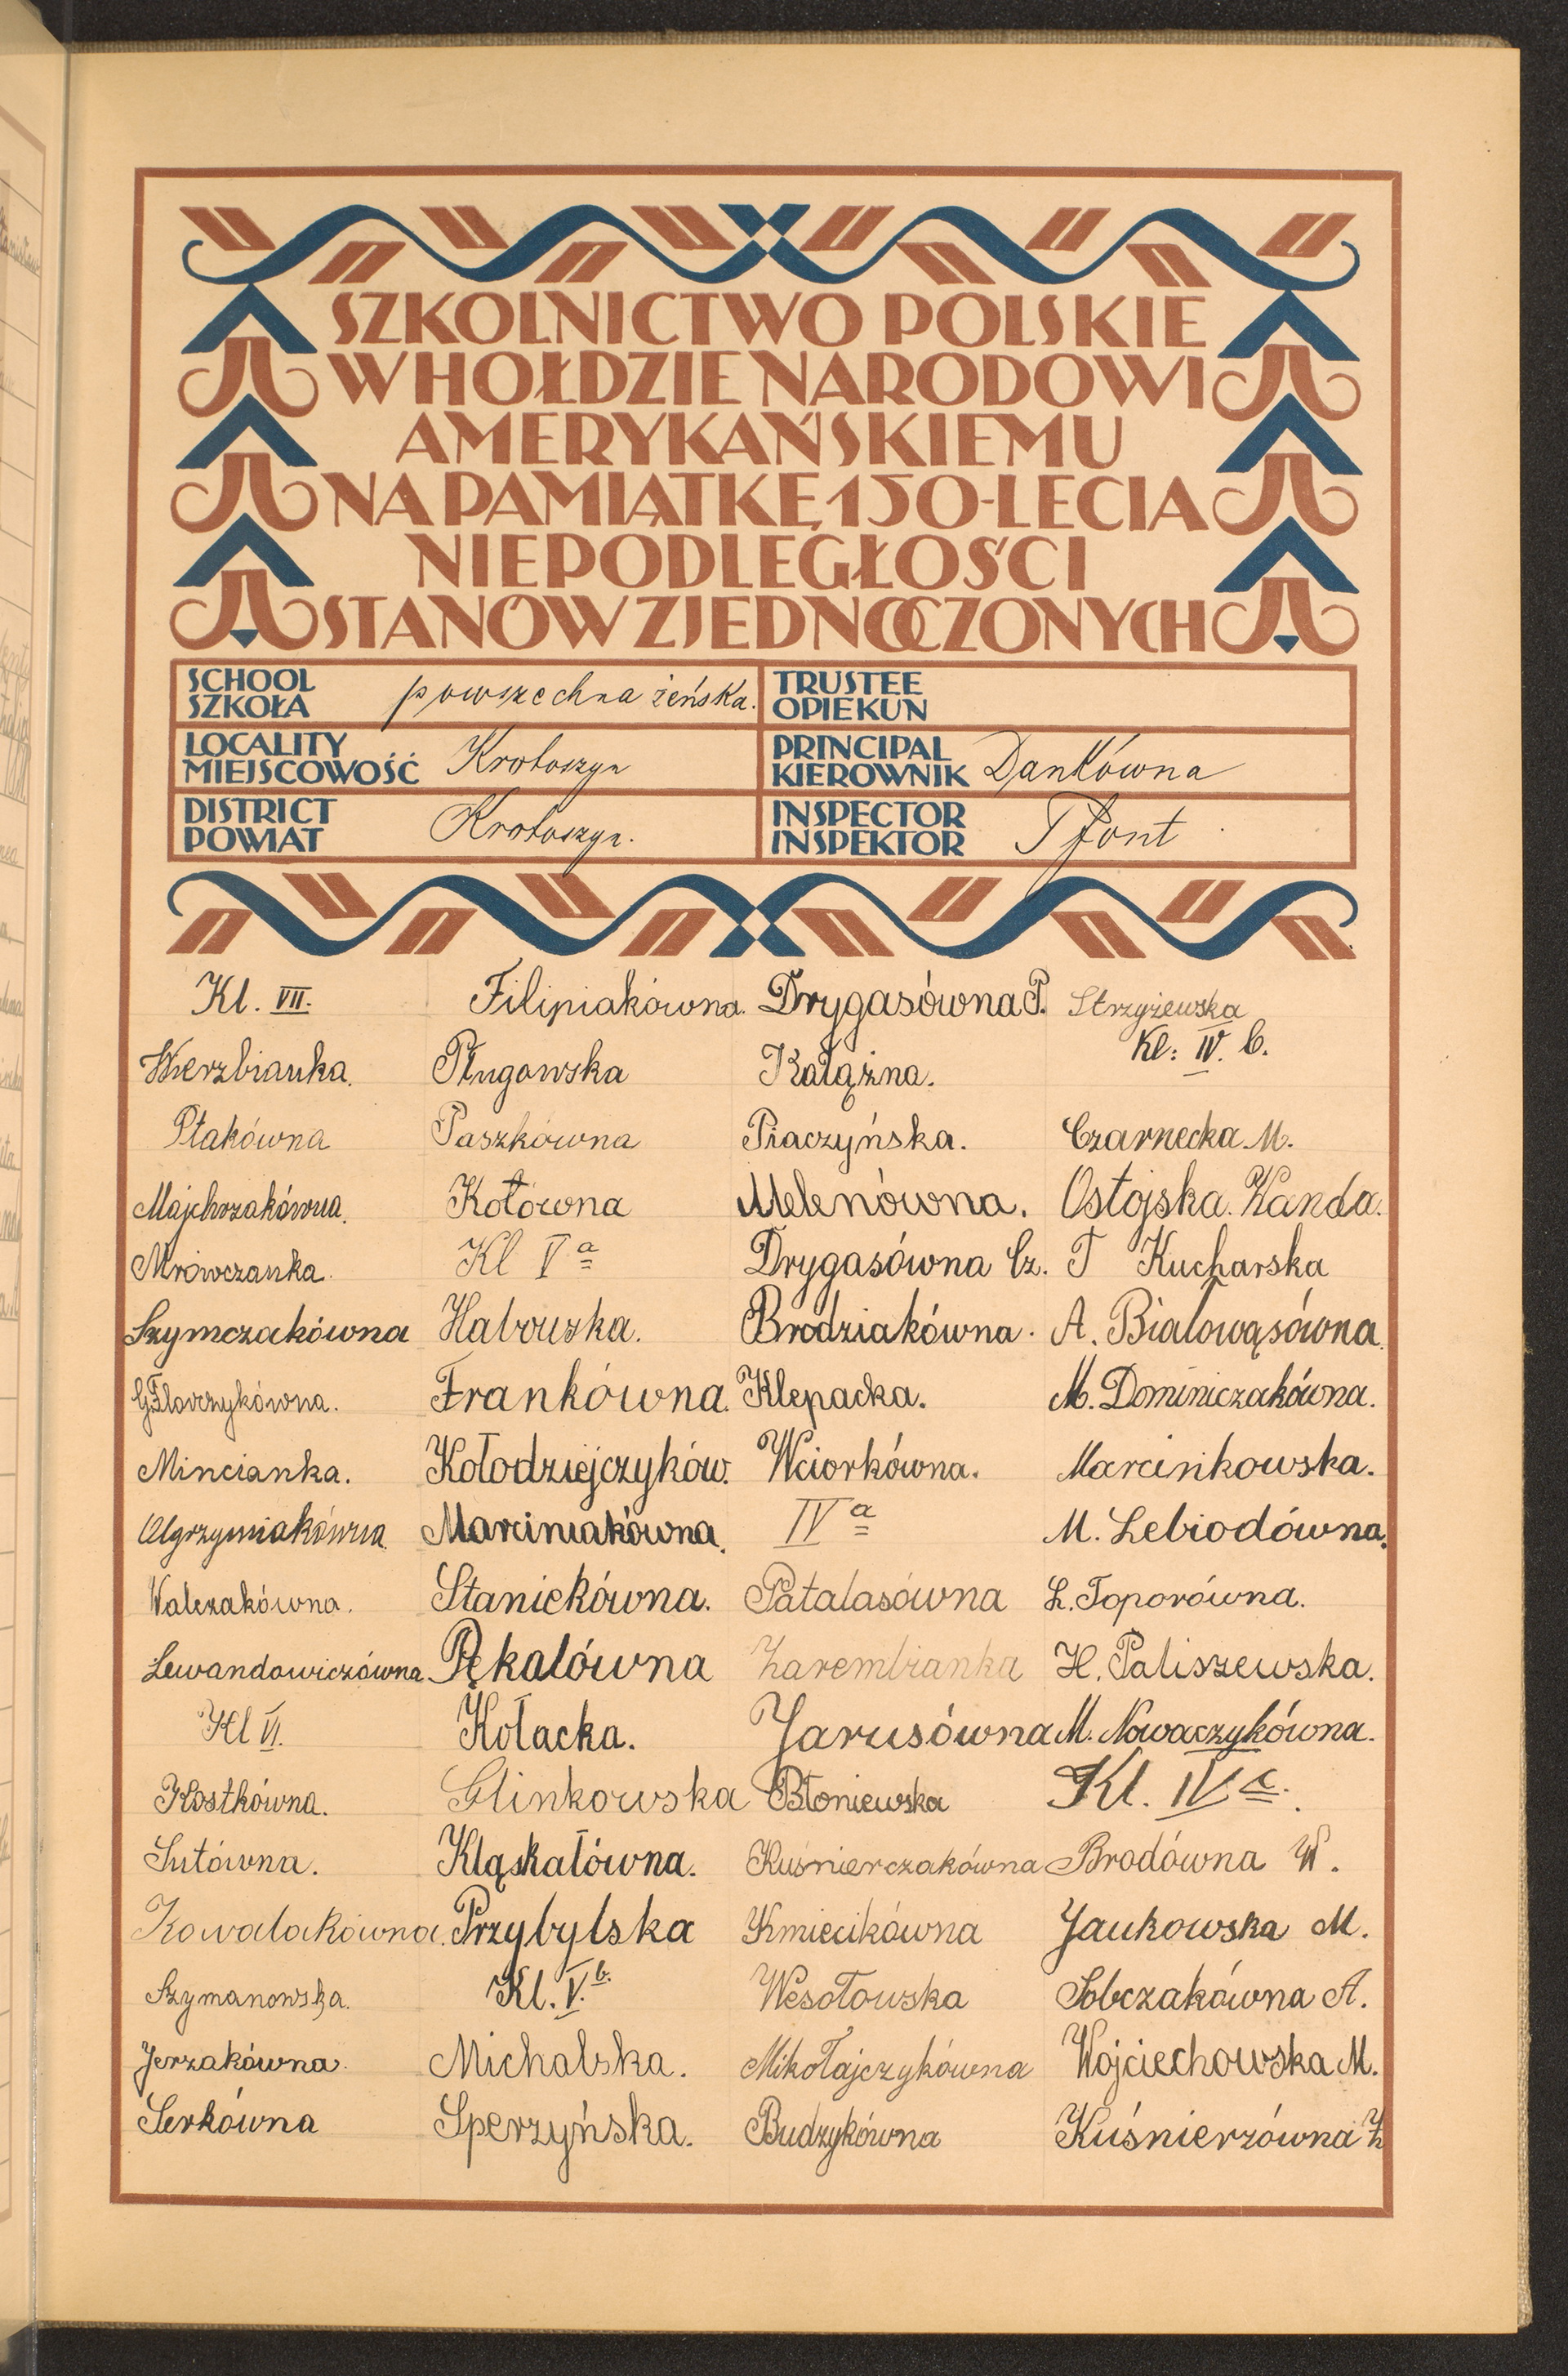 SZKOLNICTWO POLSKIE
W HOŁDZIE NARODOWI
AMERYKAŃSKIEMU
NA PAMIĄTKĘ 150-LECIA
NIEPODLEGŁOŚCI
STANÓW ZJEDNOCZONYCH
SCHOOL
SZKOŁA
powszechna żeńska.
TRUSTEE
OPIEKUN
LOCALITY
MIEJSCOWOŚĆ
Krotoszyn
PRINCIPAL
KIEROWNIK
Dankówna
DISTRICT
POWIAT
Krotoszyn.
INSPECTOR
INSPEKTOR
Pfont
Kl. VII.
Wierzbianka.
Ptakówna
Majchrzakówna.
Mrówczanka.
Szymczakówna
G Florczykówna.
Mincianka.
Walczakówna.
Lewandowiczówna
Kl VI.
Kostkówna.
Sutówna.
Kowalakówna.
Szymanowska.
Jerzakówna.
Serkówna
Filipiakówna.
Pługowska
Paszkówna
Kotówna
Kl V a
Haborska.
Frankówna.
Kołodziejczyków.
Marciniakówna.
Staniekówna.
Pękalówna
Kołacka.
Glinkowska
Kląskałówna.
Przybylska
Kl. V. b.
Michalska.
Sperzyńska.
Drygasówna P.
Kałążna.
Piaczyńska.
Melenówna.
Drygasówna Cz.
Brodziakówna.
Klepacka.
Wciorkówna.
IV a
Patalasówna
Zarembianka
Jarusówna
Błoniewska
Kuśnierczakówna
Kmiecikówna
Wesołowska
Mikołajczykówna
Budzykówna
Strzyżewska
Kl: IV. b.
Czarnecka M.
Ostojska. Wanda.
T Kucharska
A. Białowąsówna.
M. Dominiczakówna.
Marcinkowska.
M. Lebiodówna.
L. Toporówna.
H. Paliszewska.
M. Nowaczykówna.
Kl. IV c.
Brodówna W.
Jankowska M.
Sobczakówna A.
Wojciechowska M.
Kuśnierzówna Z